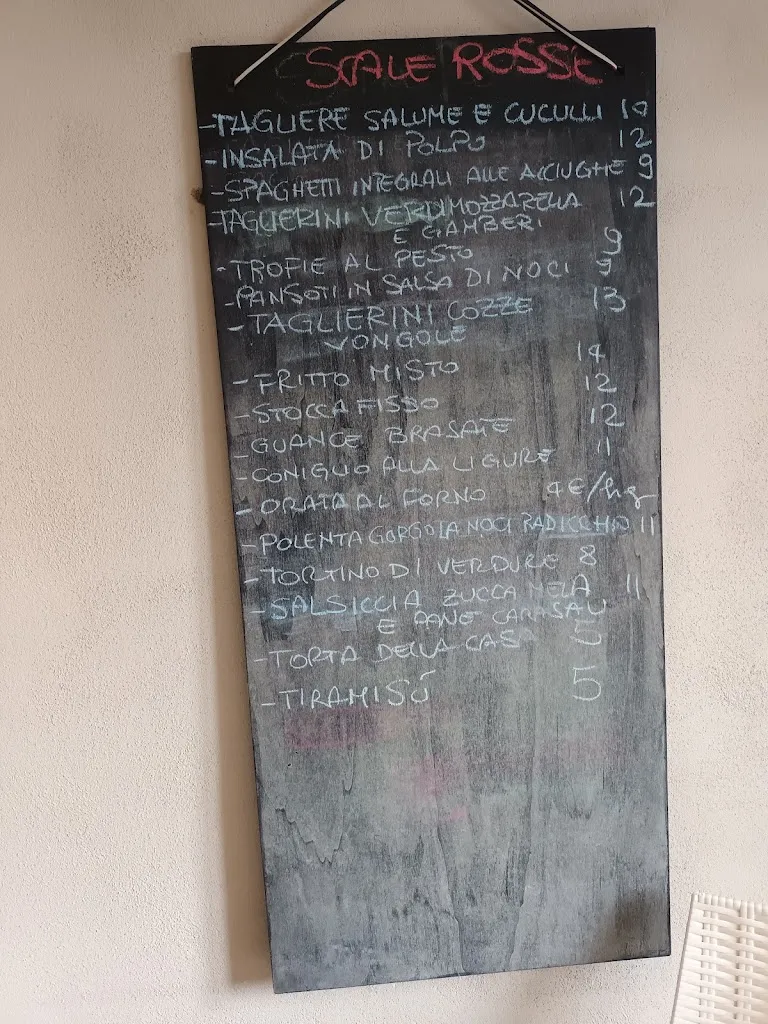 SCALE ROSSE
-TAGLIERE SALUME E CUCULLI 10
-INSALATA DI POLPO 12
-SPAGHETTI INTEGRALI ALLE ACCIUGHE 9
-TAGLIERINI VERDI MOZZARELLA 12
E GAMBERI
-TROFIE AL PESTO 9
-PANSOTI IN SALSA DI NOCI 9
-TAGLIERINI COZZE 13
VONGOLE
-FRITTO MISTO 14
-STOCCAFISSO 12
-GUANCE BRASATE 12
-CONIGLIO ALLA LIGURE 11
-ORATA AL FORNO 4€/hg
-POLENTA GORGOLA NOCI RADICCHIO 11
-TORTINO DI VERDURE 8
-SALSICCIA ZUCCA MELA 11
E PANE CARASAU
-TORTA DELLA CASA 5
-TIRAMISÚ 5